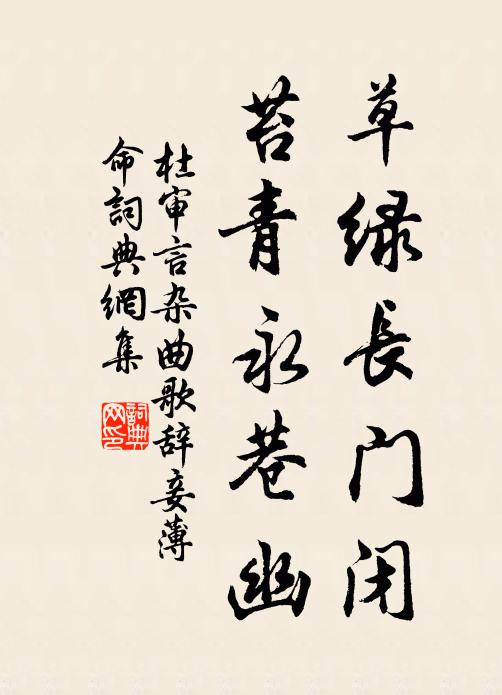 草绿長门闭
苔青永巷幽
杜审言杂曲歌辞妾薄
命詞典網集
詞典网印